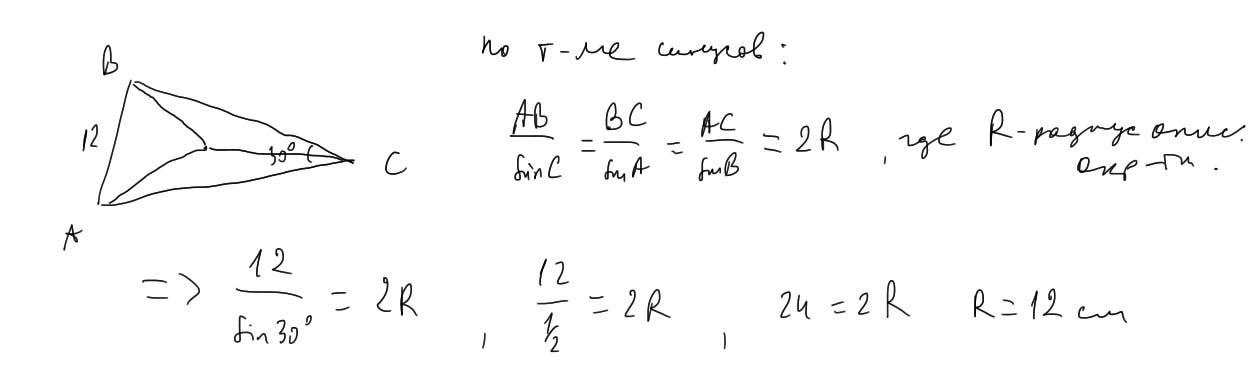 B
12
A
30°
C
по т-ме синусов:
AB/sinC = BC/sinA = AC/sinB = 2R , где R-радиус опис.
окр-ти.
=> 12/sin30° = 2R , 12/(1/2) = 2R , 24 = 2R R = 12 см